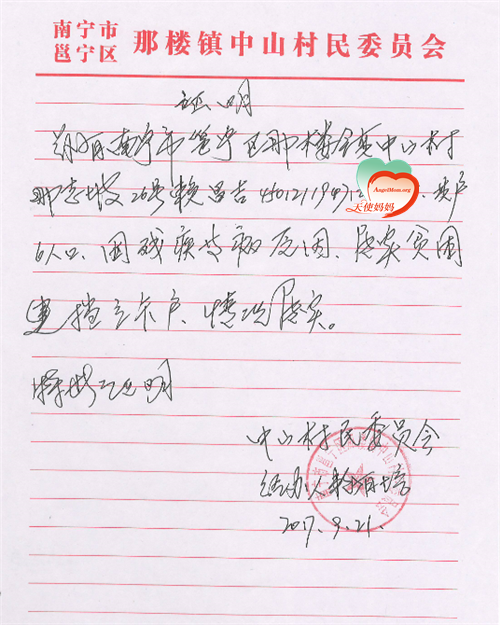 南宁市
邕宁区 那楼镇中山村民委员会
证明
兹有南宁市邕宁区那楼镇中山村
那 坡26号赖昌吉4501211947 该户
6人口、因残疾与病原因、属实贫困
建档立卡户、情况属实。
特此证明
AngelMom.org
天使妈妈
中山村民委员会
经办人 赖有培
2017.9.21.